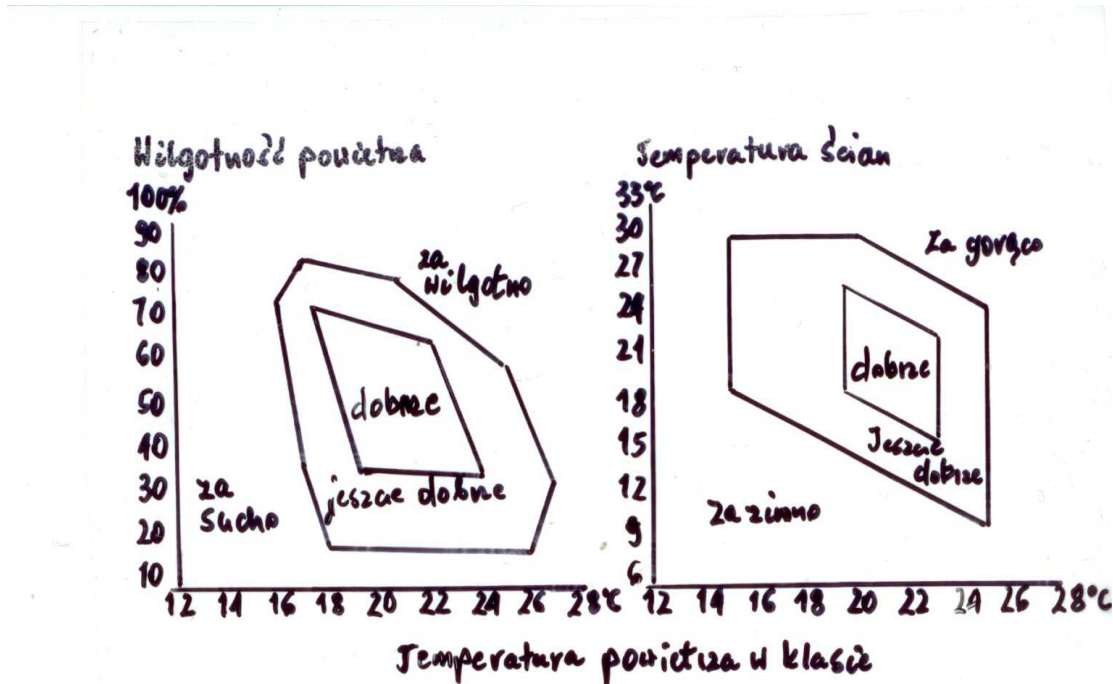 Wilgotność powietrza
100%
90
80
70
60
50
40
30
20
10
za
wilgotno
dobrze
jeszcze dobrze
za
sucho
12 14 16 18 20 22 24 26 28°C
Temperatura ścian
33°C
30
27
24
21
18
15
12
9
6
Za gorąco
dobrze
Jeszcze
dobrze
Za zimno
12 14 16 18 20 22 24 26 28°C
Temperatura powietrza w klasie